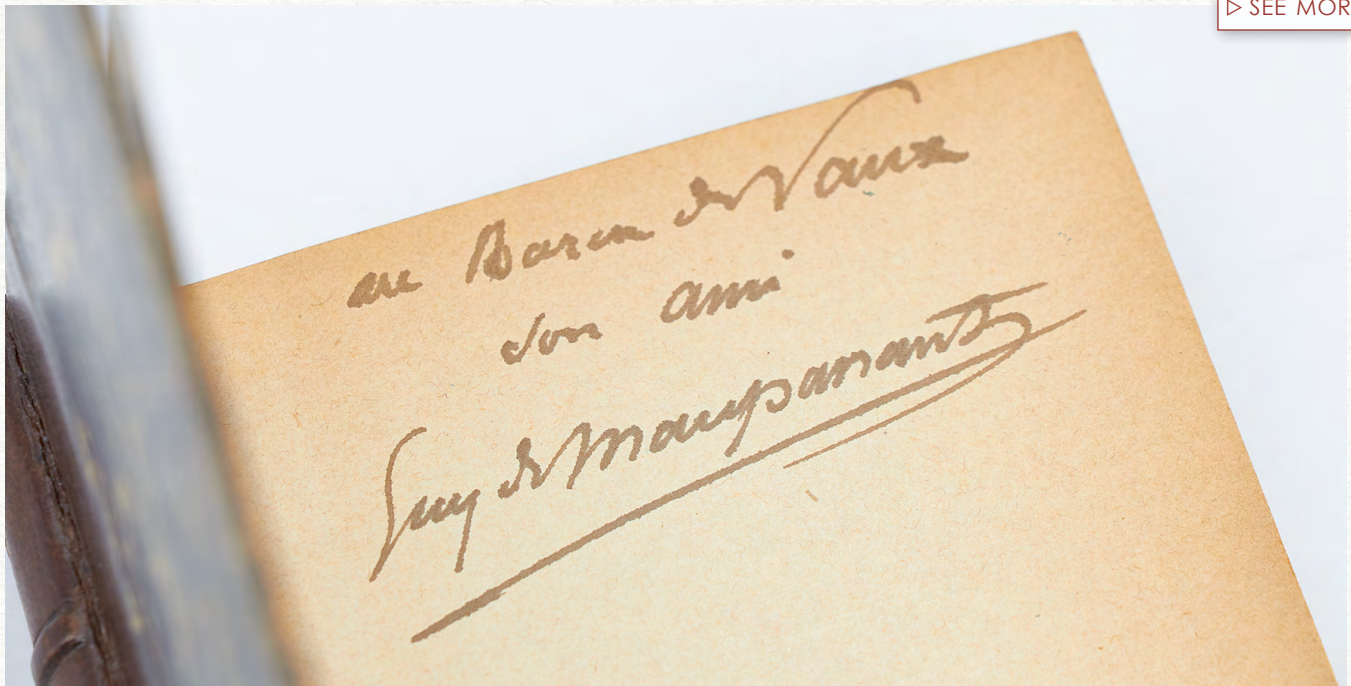 ▷ SEE MOR
au Baron de Vaux
son ami
Guy de Maupassant